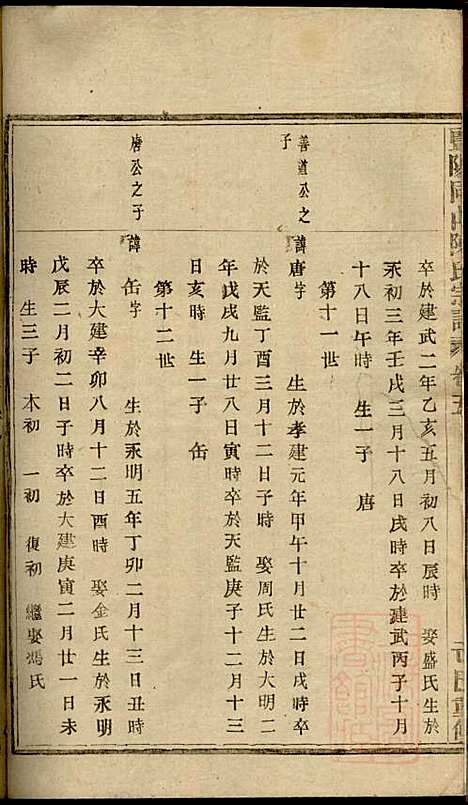 暨陽同山陳氏宗譜 卷五
卒於建武二年乙亥五月初八日辰時 娶盛氏生於
永初三年壬戌三月十八日戌時卒於建武丙子十月
十八日午時 生一子 唐
第十一世
善道公之子
諱唐字 生於孝建元年甲午十月廿二日戌時卒
於天監丁酉三月十二日子時 娶周氏生於大明二
年戊戌九月廿八日寅時卒於天監庚子十二月十三
日亥時 生一子 缶
第十二世
唐公之子
諱缶字 生於永明五年丁卯二月十三日丑時
卒於大建辛卯八月十二日酉時 娶金氏生於永明
戊辰二月初二日子時卒於大建庚寅二月廿一日未
時 生三子 木初 一初 復初 繼娶馮氏